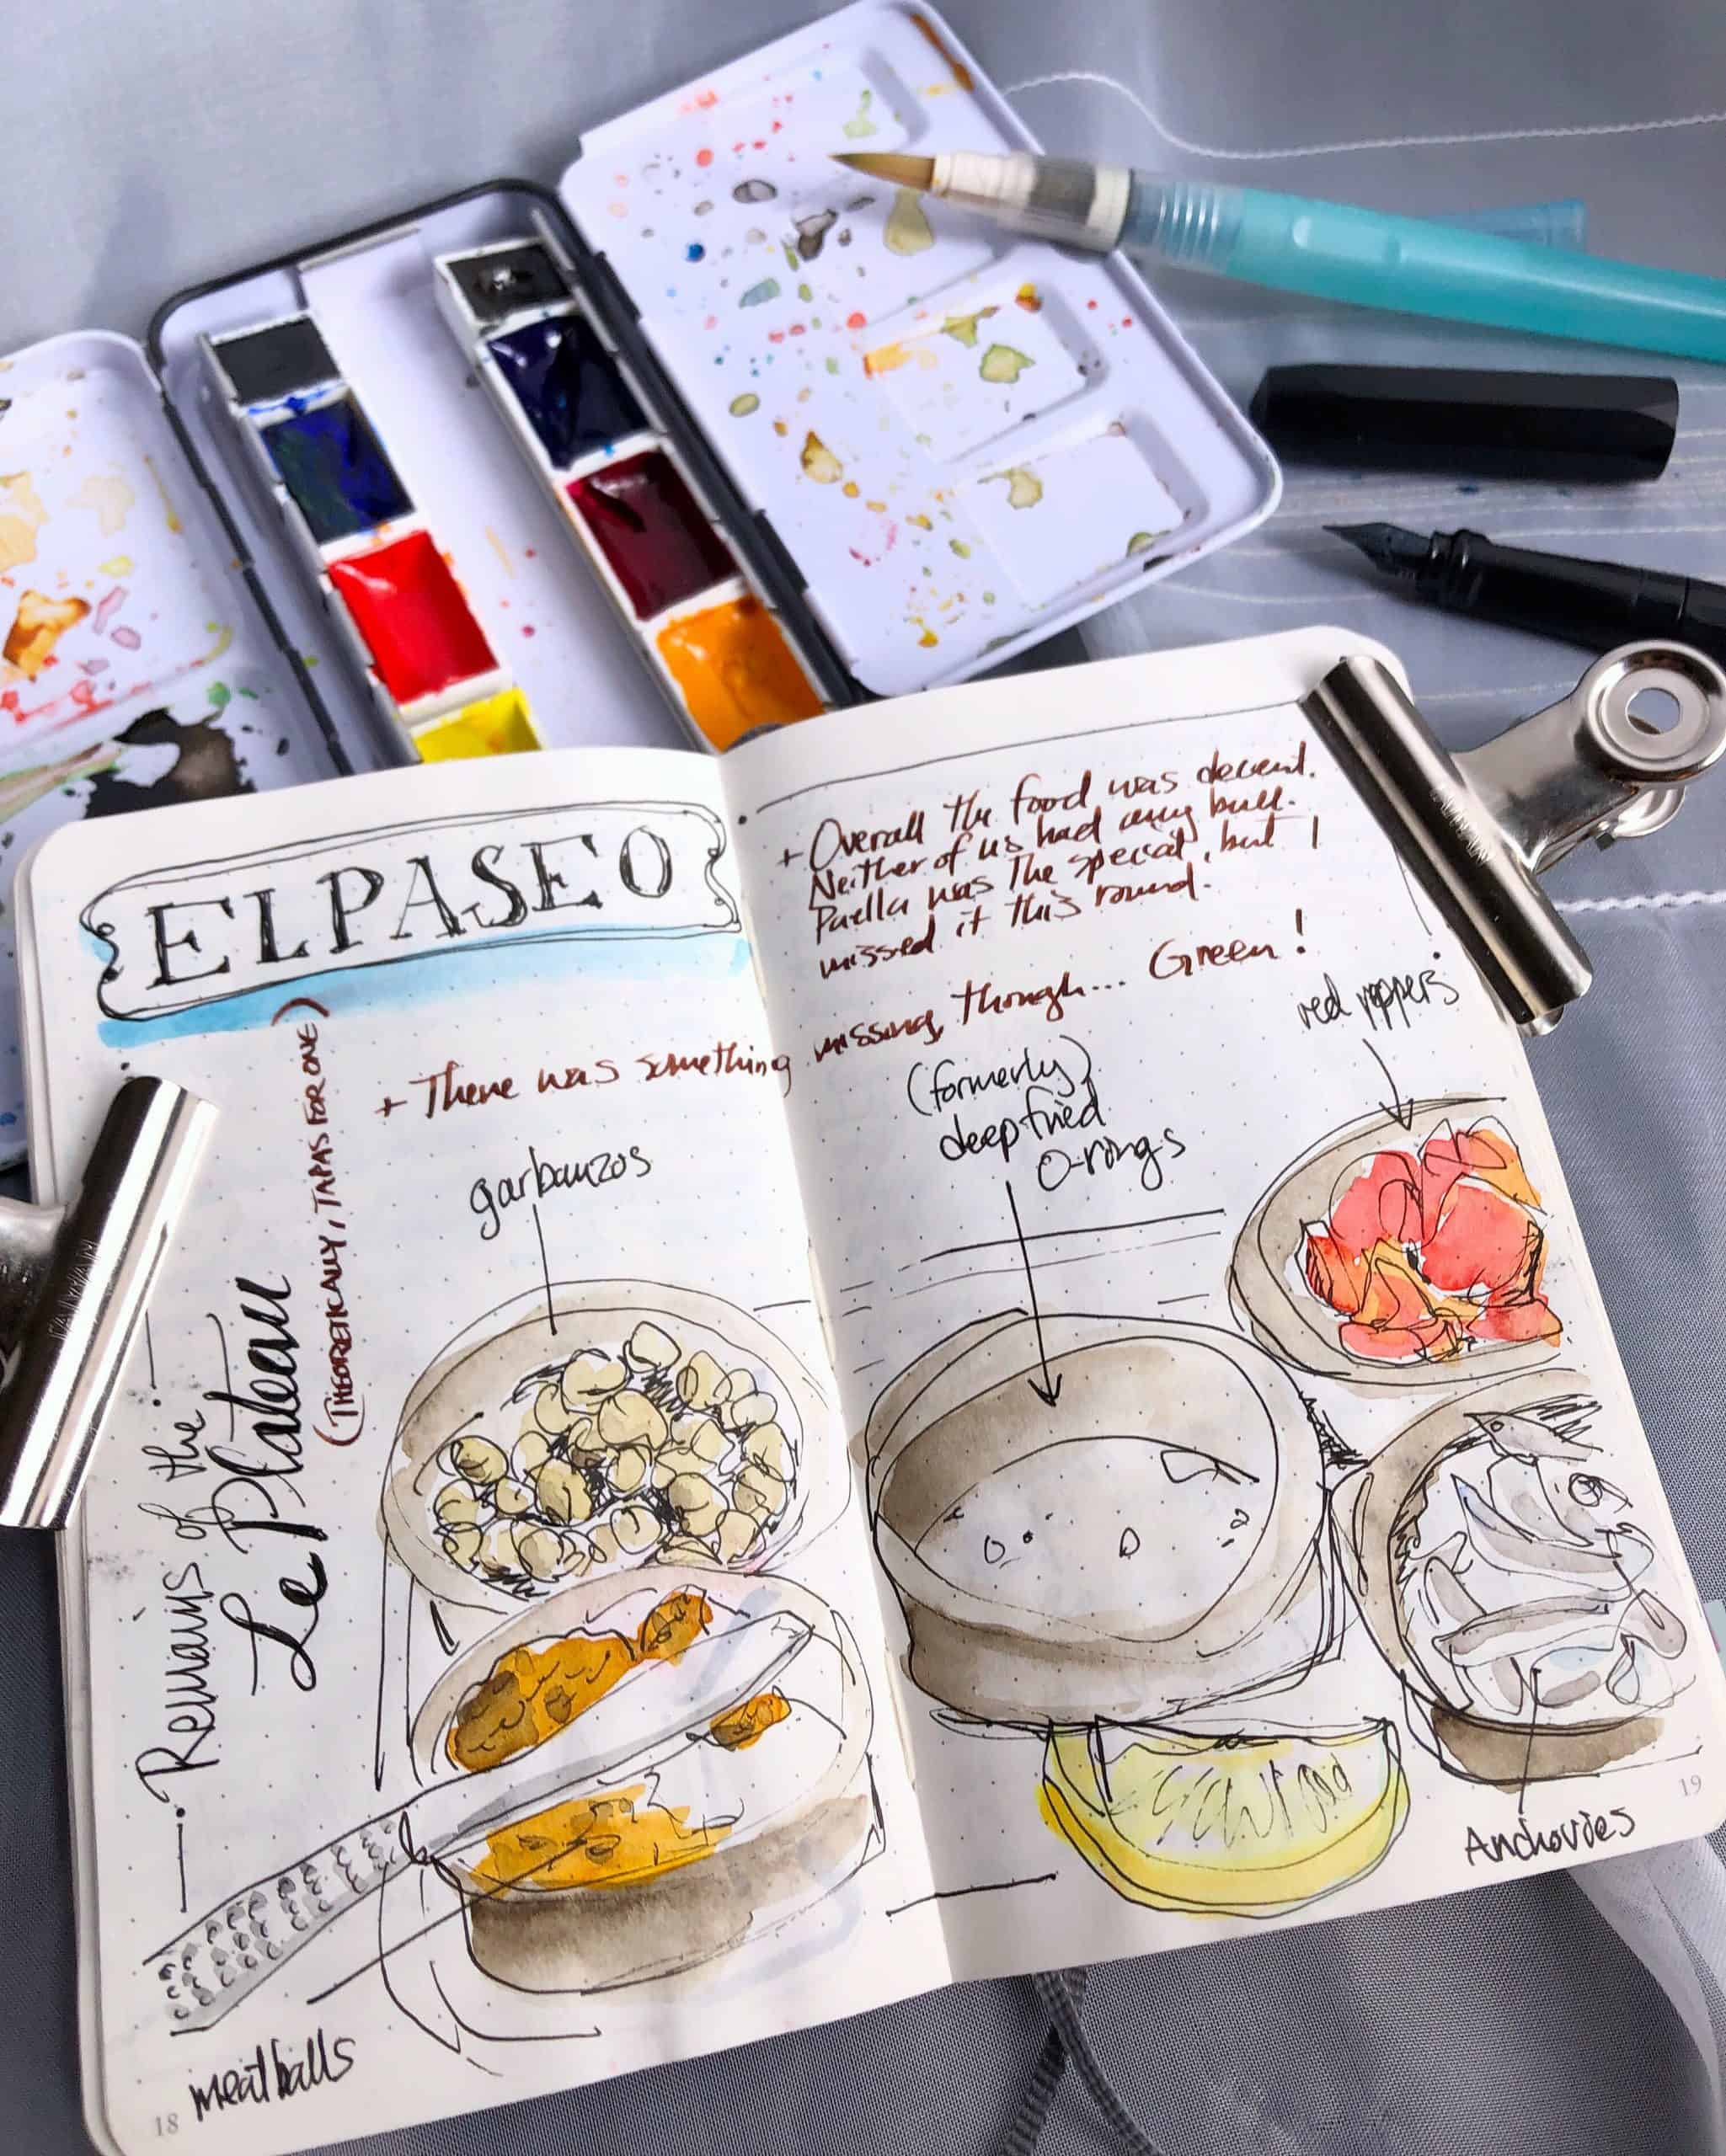 EL PASEO
+ Overall the food was decent.
Neither of us had any bull.
Paella was the special, but I
missed it this round.
+ There was something missing, though... Green!
(THEORETICALLY, TAPAS FOR ONE)
Remains of the
Le Plateau
garbanzos
(formerly)
deep fried
O-rings
red peppers
meatballs
Anchovies
18
19